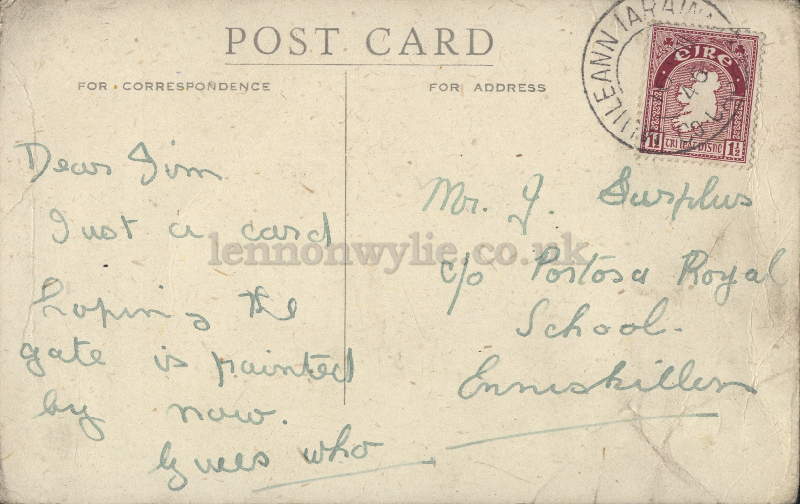 POST CARD
FOR CORRESPONDENCE
FOR ADDRESS
EIRE
1½
Dear Jim
Just a card
hoping the
gate is painted
by now.
Guess who
Mr. J. Surplus
c/o Portora Royal
School.
Enniskillen
lennonwylie.co.uk